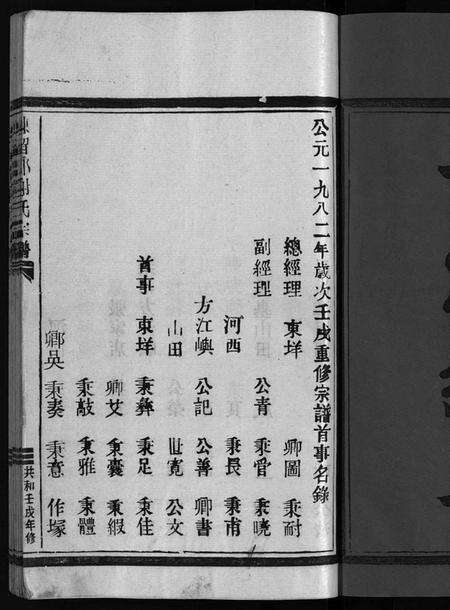 公元一九八二年歲次壬戌重修宗譜首事名錄
總經理 東垟 卿圖 秉耐
副經理 公青 秉官 秉曉
河西 秉長 秉甫
方江嶼 公記 公善 卿書
山田 世寬 公文
首事 東垟 秉彝 秉足 秉佳
卿艾 秉囊 秉緞
秉敲 秉雅 秉體
卿吳 秉奏 秉意 作塚
陳留郡謝氏宗譜
共和壬戌年修